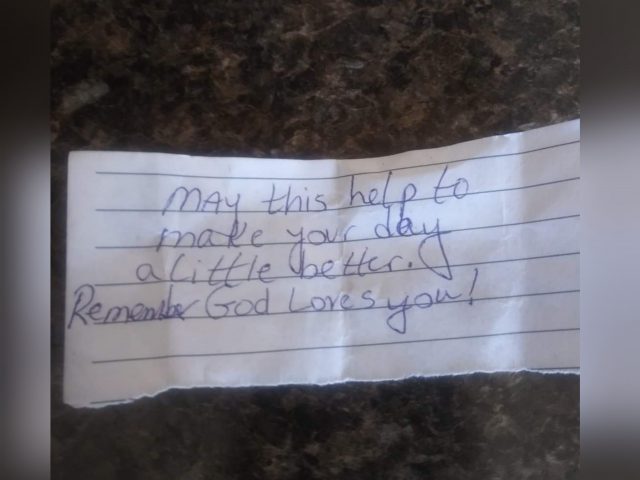 MAY this help to
make your day
a little better.
Remember God Loves you!